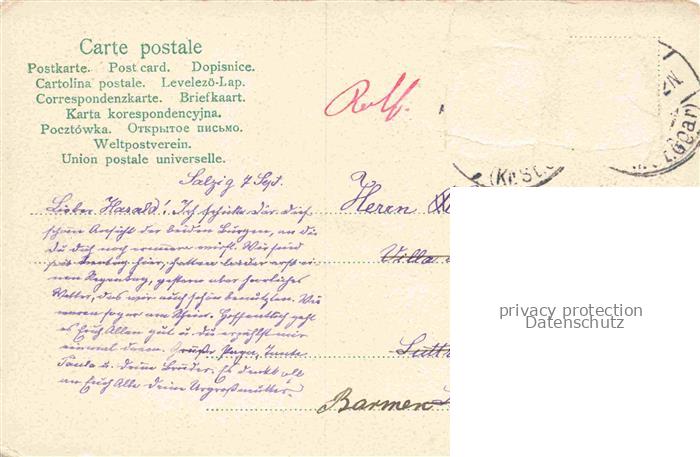 Carte postale
Postkarte. Post card. Dopisnice.
Cartolina postale. Levelező-Lap.
Correspondenzkarte. Briefkaart.
Karta korespondencyjna.
Pocztówka. Открытое письмо.
Weltpostverein.
Union postale universelle.
Rolf.
(Kr. St. Goar)
Salzig 7 Sept.
Lieber Harald! Ich schicke dir die
schöne Ansicht der beiden Burgen, an die
du dich noch erinnern wirst. Wir sind
seit hier, hatten leider erst ei
nen Regentag, gestern aber herrliches
Wetter, das wir auch schön benutzten. Wir
waren sogar am Rhein. Hoffentlich geht
es Euch Allen gut u. du erzählst mir
einmal davon. Grüße Papa, Tante
Paula u. deine Brüder. Es denkt oft
an Euch Alle deine Urgroßmutter.
Herrn
Villa
Barmen
privacy protection
Datenschutz